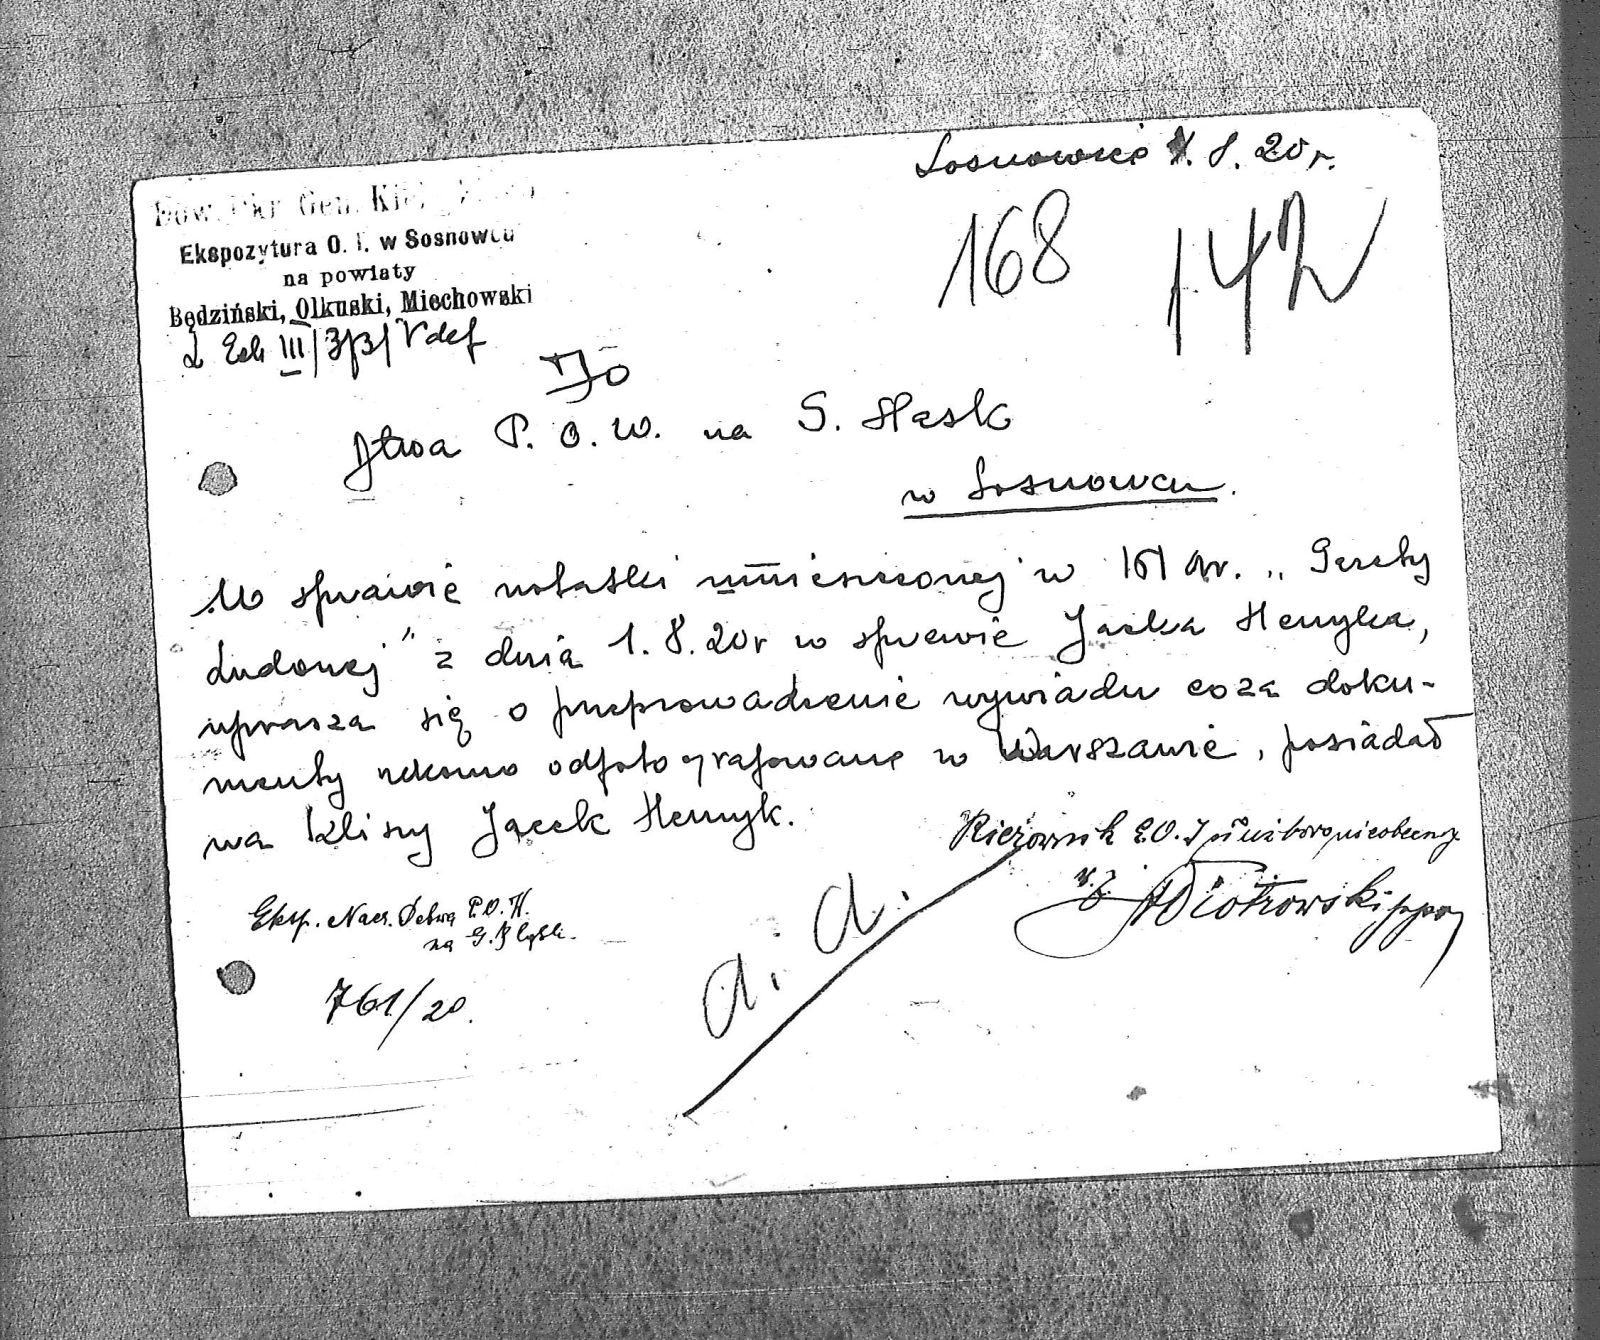 Sosnowiec 8. 20 r.
168 142
Dow. Okr. Gen.
Ekspozytura O. I. w Sosnowcu
na powiaty
Będziński, Olkuski, Miechowski
III/3/3/V def
Do
Dtwa P. O. W. na G. Śląsk
w Sosnowcu.
W sprawie notatki umieszczonej w 161 nr. „Gazety
Ludowej" z dnia 1. 8. 20 r w sprawie Jacka Henryka,
uprasza się o przeprowadzenie wywiadu co za doku-
menty rekomo odfotografowane w Warszawie, posiadał
na kliszy Jacek Henryk.
Kierownik E.O.I
Piotrowski ppor
Eksp. Nacz. Dctwa P.O.W.
na G. Śląsk.
761/20.
a. a.